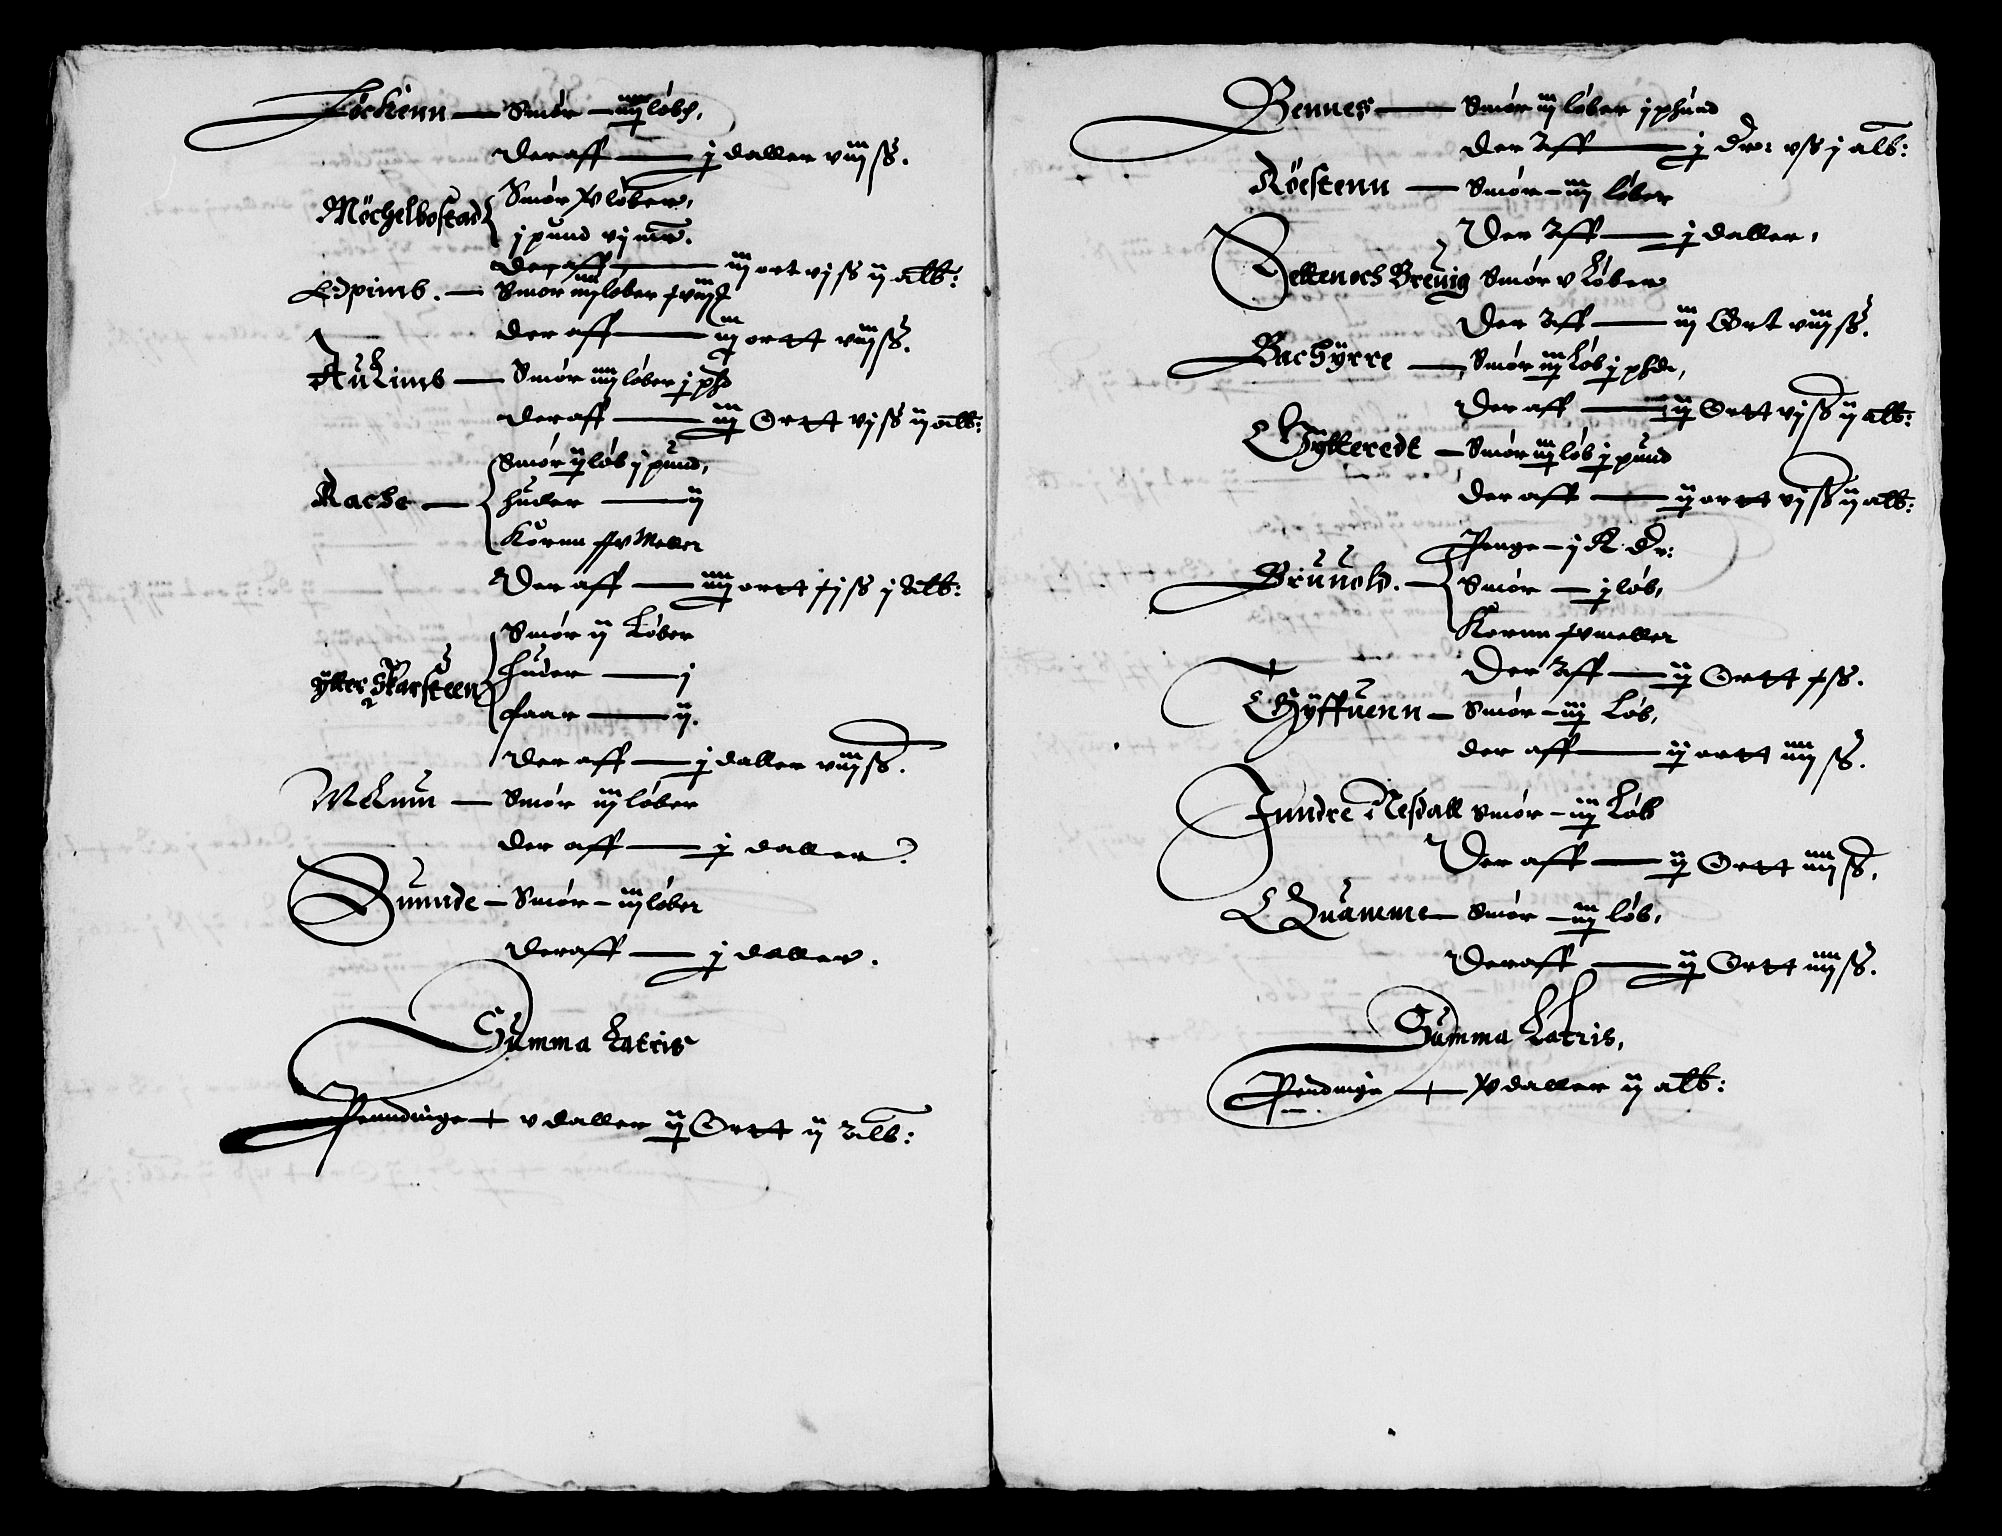 Löckenn — Smör — iiij løber,
Der aff — j daller viij ß.
Möchelbostad Smör xv løber,
j pund vj mr.
der aff — iij ort vj ß ij alb:
Edpimb. — Smör iiij løber
der aff — iij ortt viij ß.
Aukimb — Smör iiij løber j phd
der aff — iij Ortt vj ß ij alb:
Smör ij løb j pund,
Rache — huder — ij
Korun xv Meller
Der aff — iiij ortt xj ß j alb:
Smör ij Løber
ytter Skarsteen huder — j
faar — ij.
Der aff — j daller viij ß.
Melum — Smör iij løber
der aff — j daller.
Sunnde — Smör — iij løber
der aff — j daller.
Summa Latris
Penndinge — v daller ij Ortt ij alb:
Bennes — Smör iij løber j phund
Der Aff — j Dr: v ß j alb:
Röestenn — Smör — iij løber
Der Aff — j daller,
Setten och Breuig Smör v Løber
Der Aff — iij Ort viij ß.
Bachÿrre — Smör iij Løb j phd,
Der aff — ij Ortt vj ß ij alb:
Gytteredt — Smör iij løb j pund
der aff — ij ortt vj ß ij alb:
Penge — j R. Dr:
Brunold. — Smör — j løb,
Korun xv meller
Der Aff — ij Ortt x ß.
Gÿffuenn — Smör — iij Løb,
der aff — ij ortt iiij ß.
Inndre Nesdall Smör — iij Løb
Der aff — ij Ortt iiij ß.
Quamme — Smör — iij løb,
Der aff — ij Ortt iiij ß.
Summa Latris,
Pendinge — xv daller ij alb: